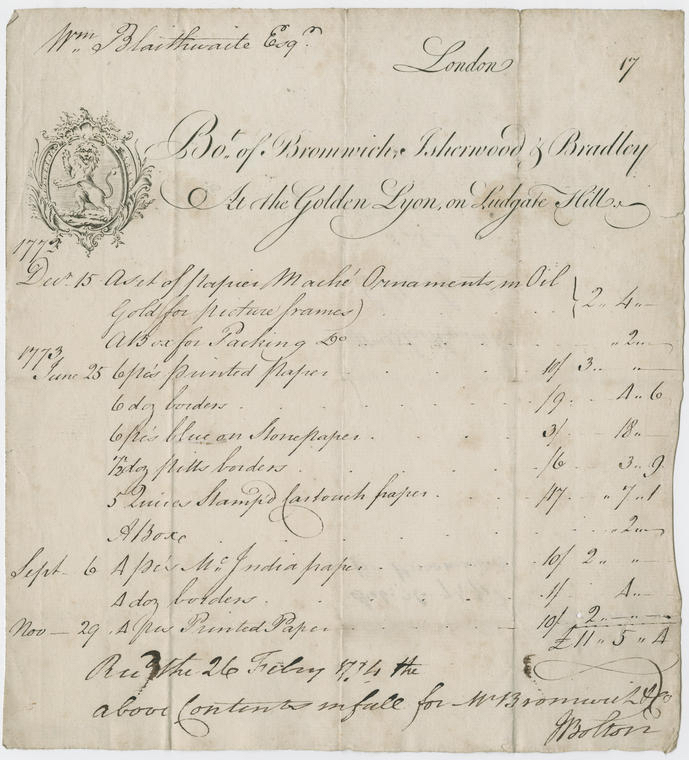 Wm Blaithwaite Esqr.
London 17
Bot. of Bromwich, Isherwood & Bradley
At the Golden Lyon, on Ludgate Hill
1772
Decr. 15 A set of papier Maché Ornaments, in Oil
Gold (for picture frames) 2 „ 4 „ —
A Box for Packing &c „ 2 „ —
1773
June 25 6 ps printed paper 10/ 3 „ „ —
6 doz borders /9 4 „ 6
6 ps blue on Stone paper 3/ 18 „ —
7½ doz borders /6 3 „ 9
5 Quires Stamp'd Cartouch paper /17 „ 7 „ 1
A Box „ 2 „ —
Sept — 6 4 ps Mc. India paper 10/ 2 „ „
4 doz borders 1/ 4 „ —
Nov — 29 4 ps Printed Paper 10/ 2 „ „ —
£11 „ 5 „ 4
Recd the 26 Febry 1774 the
above Contents in full for Mr Bromwich & Co
J Bolton